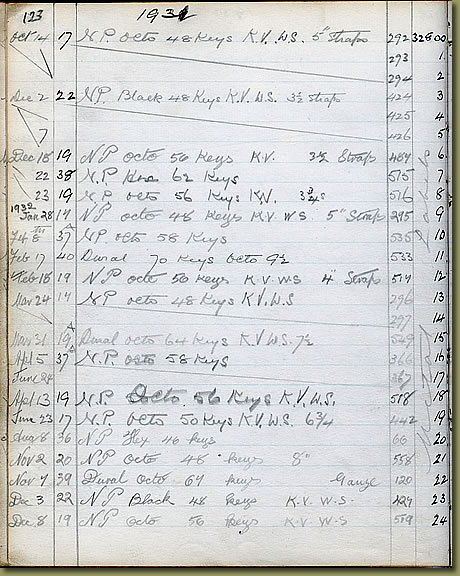 123 1931
Oct 14 17 N.P. Octo 48 Keys K.V. W.S. 5" Straps 292 32800
293 1
294 2
Dec 2 22 N.P. Black 48 Keys K.V. W.S. 3½ Straps 424 3
425 4
7 426 5
Dec 18 19 N P Octo 56 Keys K.V. 3½ Straps 6
22 38 N.P. 62 Keys 515 7
23 19 N.P. octo 56 Keys K.V. 516 8
1932 Jan 28 17 N P octo 48 Keys K V W S 5" Strap 295 9
8 37 N.P. octo 58 Keys 535 10
Feb 17 40 Dural 70 Keys Octo 9½ 533 11
Feb 18 19 N P octo 56 Keys K.V.W.S 4" Straps 517 12
Mar 24 17 N P octo 48 Keys K.V. W.S 296 13
297 14
Mar 31 19 Dural octo 64 Keys K V W.S. 7½ 549 15
Apl 5 37 N.P. octo 58 Keys 366 16
June 28 367 17
Apl 13 19 N.P. Octo 56 Keys K.V.W.S. 518 18
June 23 17 N.P. octo 50 Keys K.V. W.S. 6¾ 442 19
Aug 8 36 N P Hex 46 keys 66 20
Nov 2 20 N P Octo 48 keys 8" 558 21
Nov 7 39 Dural octo 67 keys Gauze 120 22
Dec 3 22 N P Black 48 keys K.V. W.S. 427 23
Dec 8 19 N P octo 56 keys K.V. W.S 519 24